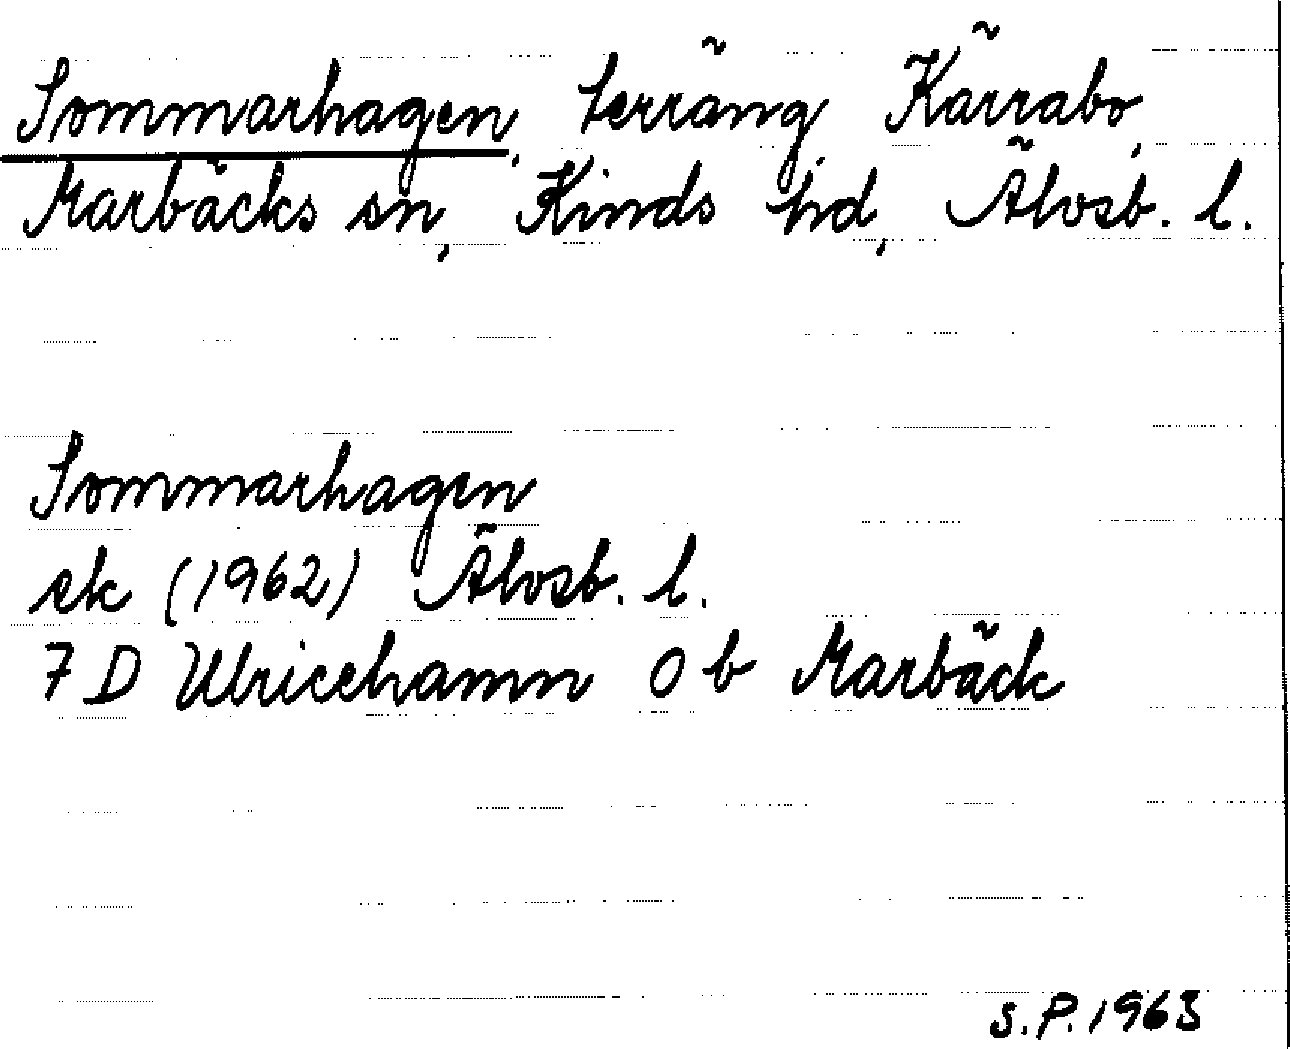 Sommarhagen, terräng, Kärrabo,
Marbäcks sn, Kinds hd, Älvsb. l.
Sommarhagen
ek (1962) Älvsb. l.
7 D Ulricehamn 0 b Marbäck
S.P. 1963